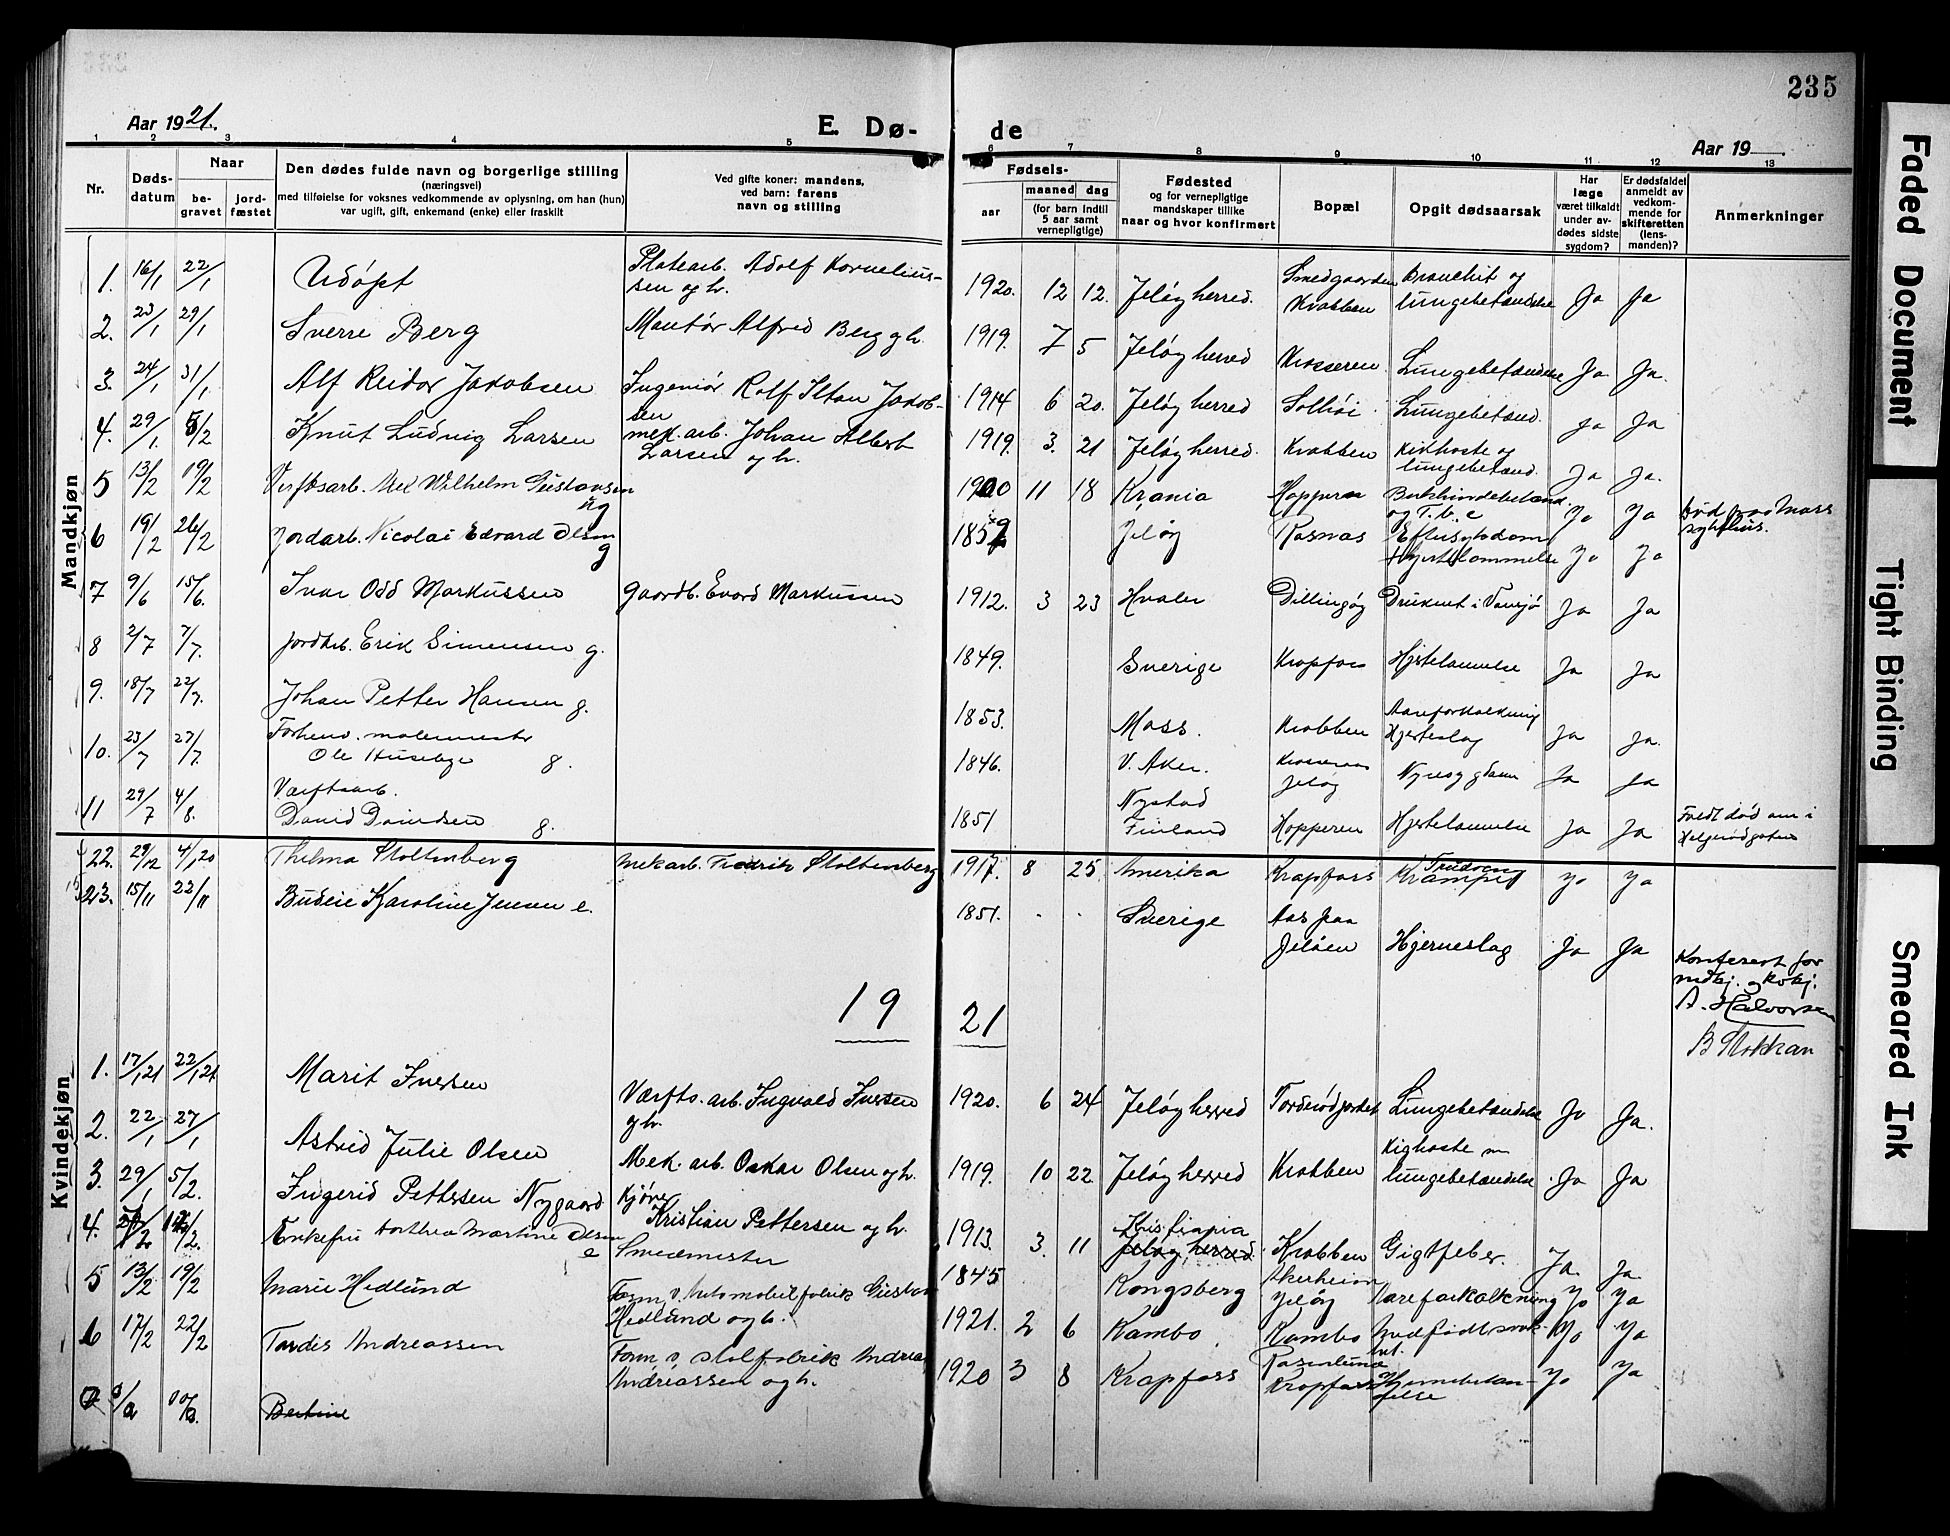 235
Aar 1921.
E. Dø-
de
Aar 19
1 2 3 4 5 6 7 8 9 10 11 12 13
Nr.
Døds-
datum
Naar
be-
gravet
jord-
fæstet
Den dødes fulde navn og borgerlige stilling
(næringsvei)
med tilføielse for voksnes vedkommende av oplysning, om han (hun)
var ugift, gift, enkemand (enke) eller fraskilt
Ved gifte koner: mandens,
ved barn: farens
navn og stilling
Fødsels-
aar
maaned dag
(for barn indtil
5 aar samt
vernepligtige)
Fødested
og for vernepligtige
mandskaper tillike
naar og hvor konfirmert
Bopæl
Opgit dødsaarsak
Har
læge
været tilkaldt
under av-
dødes sidste
sygdom?
Er dødsfaldet
anmeldt av
vedkom-
mende for
skifteretten
(lens-
manden)?
Anmerkninger
Mandkjøn
1. 16/1 22/1 Udøpt Platearb. Adolf Kornelius-
sen og h. 1920. 12 12. Jeløy herred. Smedgaarden
Krabben Bronchit og
lungebetændelse Ja Ja
2. 23/1 29/1 Sverre Berg Montør Alfred Berg og h. 1919. 7 5 Jeløy herred Krosseren Lungebetændelse Ja Ja.
3. 24/1 31/1 Alf Reidar Jakobsen Ingeniør Rolf Iltan Jakob-
sen 1914 6 20. Jeløy herred Solhøi Lungebetænd. Ja Ja
4. 29/1 5/2 Knut Ludvig Larsen mek. arb. Johan Albert
Larsen og h. 1919. 3. 21 Jeløy herred. Krabben Kikhoste og
lungebetænd. Ja Ja.
5 13/2 19/2 Verftsarb. Wilhelm Gustavsen
ug 1900 11 18 Krania Hopperen
og T.b.c Jo Ja Død paa Moss
sykehus.
6 19/2 26/2 Jordarb. Nicolai Edvard Olsen
g Jeløy Rosnæs
Hjertelammelse Jo Ja
7 9/6 15/6. Ivar Odd Markussen Gaardb. Evard Markussen 1912. 3 23 Hvaler Dillingøy Druknet i Vansjø Ja Ja
8 2/7 7/7. Jordarb. Erik Simensen g. 1849. Sverige Krapfoss Hjertelammelse Ja Ja
9. 18/7 22/7. Johan Petter Hansen g. 1853. Moss. Krabben Aareforkalkning
Hjerteslag Ja Ja.
10. 23/7 27/7. Forhenv. malermester
Ole Huseby g. 1846. V. Aker. Krosseren
Jeløy Nyresygdom Ja Ja
11 29/7 4/8. Værftsarb.
David Davidsen g. 1851 Nystad
Finland Hopperen Hjertelammelse Ja Ja Født død anm i
22. 29/12 4/1 20 Thelma Stoltenberg Mekarb. Fredrik Stoltenberg 1917. 8 25 Amerika Krapfoss Krampe Jo Ja
23. 15/11 22/11 Karoline Jensen e. 1851. Sverige Aas paa
Jeløen Hjerneslag Ja Ja
Konferert for
mdkj. og kvkj.
A. Halvorsen
B Stokkan
19 21
Kvindekjøn
1. 17/1 21 22/1 21 Marit Iversen Værfts. arb. Ingvald Iversen
og h. 1920. 6 24 Jeløy herred Lungebetændelse Jo Ja.
2. 22/1 27/1 Astrid Julie Olsen Mek. arb. Oskar Olsen og h. 1919. 10 22 Jeløy herred Krabben Kighoste m
lungebetændelse Ja Ja
3. 29/1 5/2. Ingerid Pettersen Nygaard Kjører
Kristian Pettersen og h. 1913. 3. 11 Kristiania
Jeløy herred Krabben Gigtfeber. Ja. Ja.
4. Enkefru Dorthea Martine Olsen
e Smedmester 1845 Kongsberg Akerheim
Jeløy Aareforkalkning Jo Ja
5 13/2 19/2 Marie Hedlund Form. v. Automobilfabrik Gustav
Hedlund og h. 1921. 2 6 Kambo Kambo Medfødt svak-
het. Jo Ja
6 17/2 22/2 Tordis Andreassen Form. v. stolfabrik Andreas
Andreassen og h. 1920 3 8 Krapfoss Rosenlund
Krapfoss Hjernebetæn-
delse Jo Ja
Bertine
Faded Document
Tight Binding
Smeared Ink